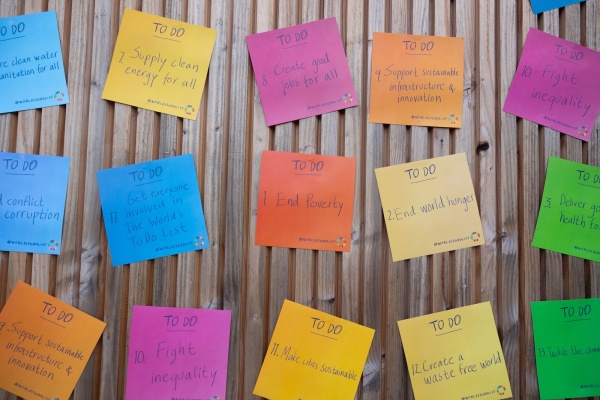 re clean water
anitation for all
#WORLDSTODOLIST
TO DO
7. Supply clean
energy for all
#WORLDSTODOLIST
TO DO
8. Create good
jobs for all
#WORLDSTODOLIST
TO DO
9. Support sustainable
infrastructure &
innovation
#WORLDSTODOLIST
TO DO
10. Fight
inequality
#WORLDSTODOLIST
TO DO
d conflict
corruption
#WORLDSTODOLIST
TO DO
17. Get everyone
involved in
The World's
To Do List
#WORLDSTODOLIST
TO DO
1. End Poverty
#WORLDSTODOLIST
TO DO
2. End world hunger
#WORLDSTODOLIST
TO DO
3. Deliver go
health fo
#WORLDSTODOLIST
TO DO
9. Support sustainable
infrastructure &
innovation
TO DO
10. Fight
inequality
#WORLDSTODOLIST
TO DO
11. Make cities sustainable
TO DO
12. Create a
waste free world
#WORLDSTODOLIST
TO DO
13. Tackle the clima
#WORLDSTODOLIST